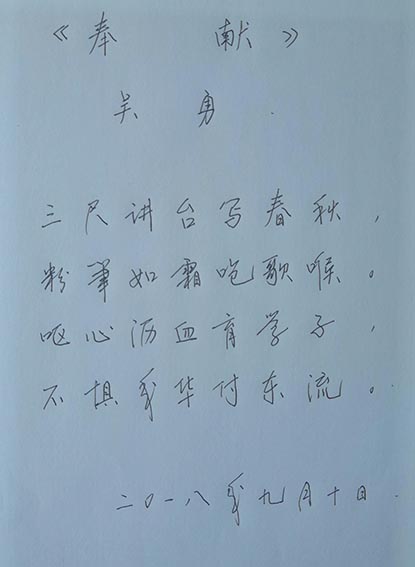 《奉献》
吴勇
三尺讲台写春秋，
粉筆如霜咆歌喉。
呕心沥血育学子，
不惧年华付东流。
二〇一八年九月十日.